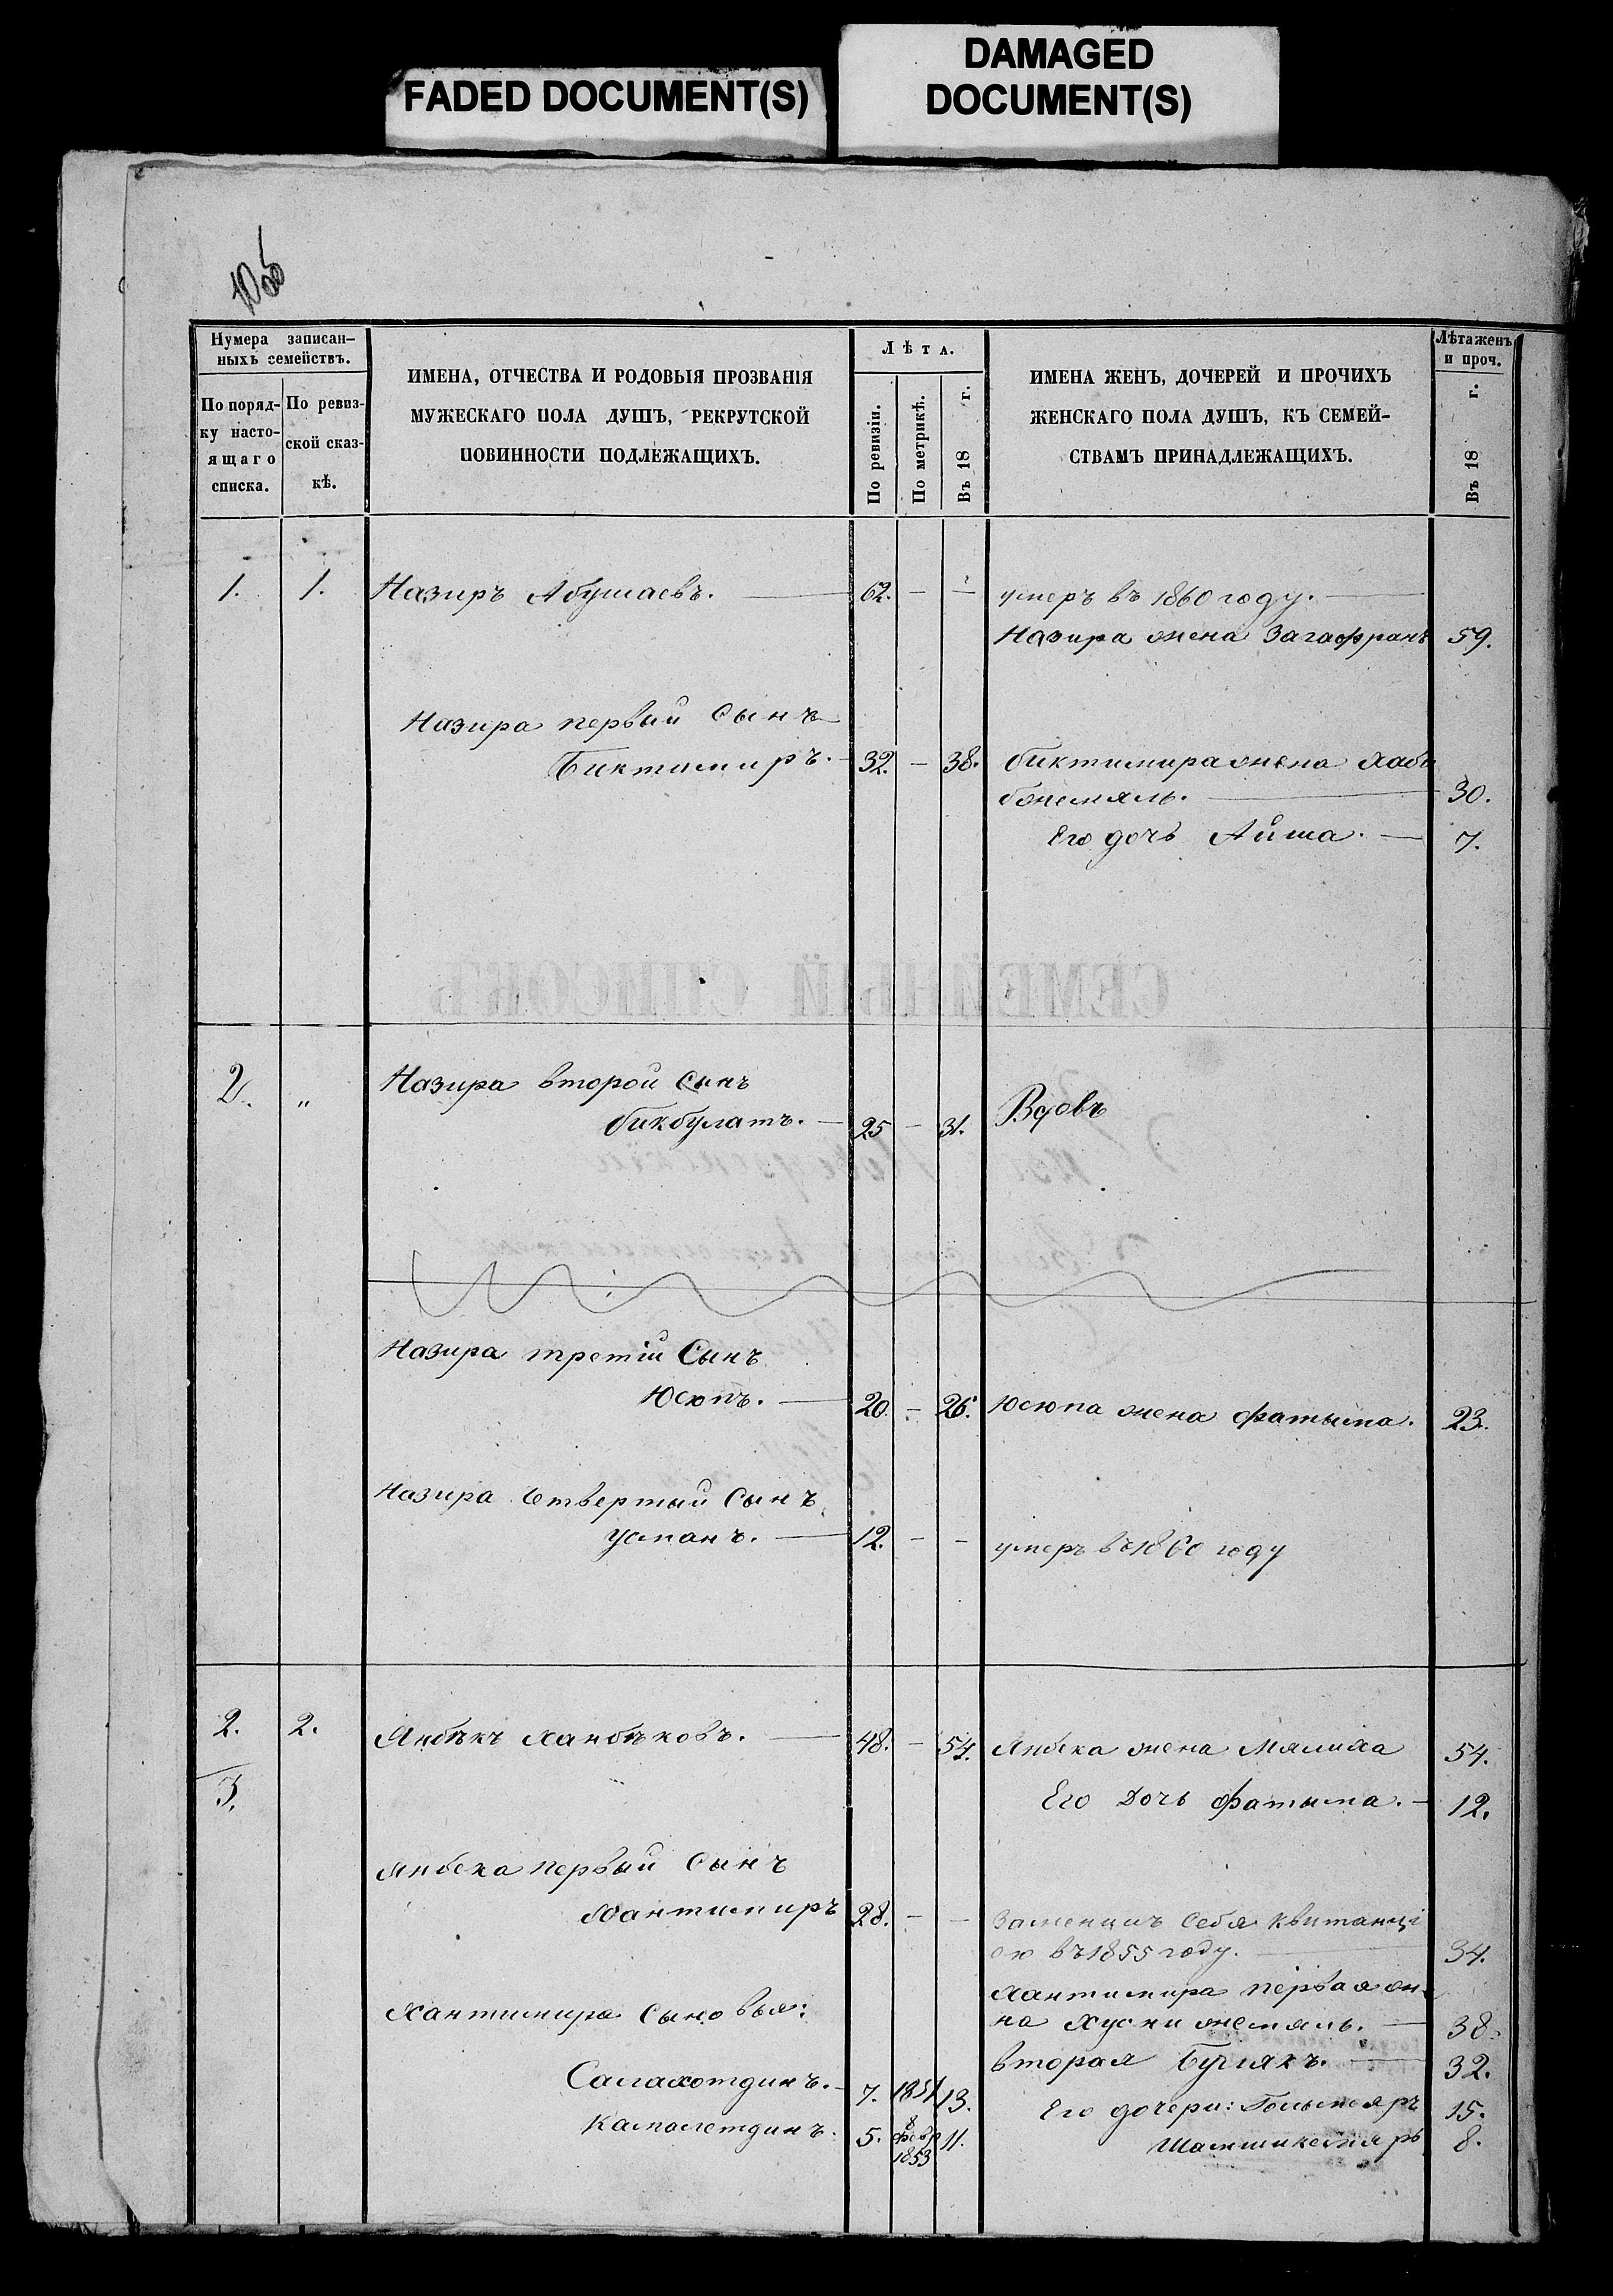 FADED DOCUMENT(S)
DAMAGED
DOCUMENT(S)
10об
Нумера записан-
ныхъ семействъ.
По поряд-
ку насто-
ящаго
списка.
По ревиз-
ской сказ-
кѣ.
ИМЕНА, ОТЧЕСТВА И РОДОВЫЯ ПРОЗВАНІЯ
МУЖЕСКАГО ПОЛА ДУШЪ, РЕКРУТСКОЙ
ПОВИННОСТИ ПОДЛЕЖАЩИХЪ.
Лѣта.
По ревизіи.
По метрикѣ.
Въ 18 г.
ИМЕНА ЖЕНЪ, ДОЧЕРЕЙ И ПРОЧИХЪ
ЖЕНСКАГО ПОЛА ДУШЪ, КЪ СЕМЕЙ-
СТВАМЪ ПРИНАДЛЕЖАЩИХЪ.
Лѣта женъ
и проч.
Въ 18 г.
1. 1. Назиръ Абушаевъ. — 62. — — умеръ въ 1860 году. —
Назира жена Загафранъ 59.
Назира первый Сынъ
Биктимиръ. — 32. — 38. биктимира жена Хаби
бжемяль. — 30.
Его дочь Айша. — 7.
СЕМЕЙНЫЙ СПИСОКЪ
2. " Назира второй Сынъ
бикбулатъ. — 25 — 31. Вдовъ
Назира третій Сынъ
Юсюпъ. — 20. — 26. Юсюпа жена фатыма. 23.
Назира Четвертый Сынъ
усманъ. — 12. — — умеръ въ 1860 году
2. 2. Янбѣкъ Ханбѣковъ. — 48. — 54. Янбека жена Мялика 54.
3.
Его Дочь фатыма. — 12.
Янбека первый Сынъ
Хантимиръ 28. — — Заменилъ Себя квитанці
ею въ 1855 году. — 34.
Хантимира первая же
на Хусни жемяль. — 38.
Хантимира Сыновья:
вторая — 32.
Салахотдинъ. — 7. 1851 13.
Его дочери: 15.
Камалетдинъ. 5. 8 февр 1853 11.
8.